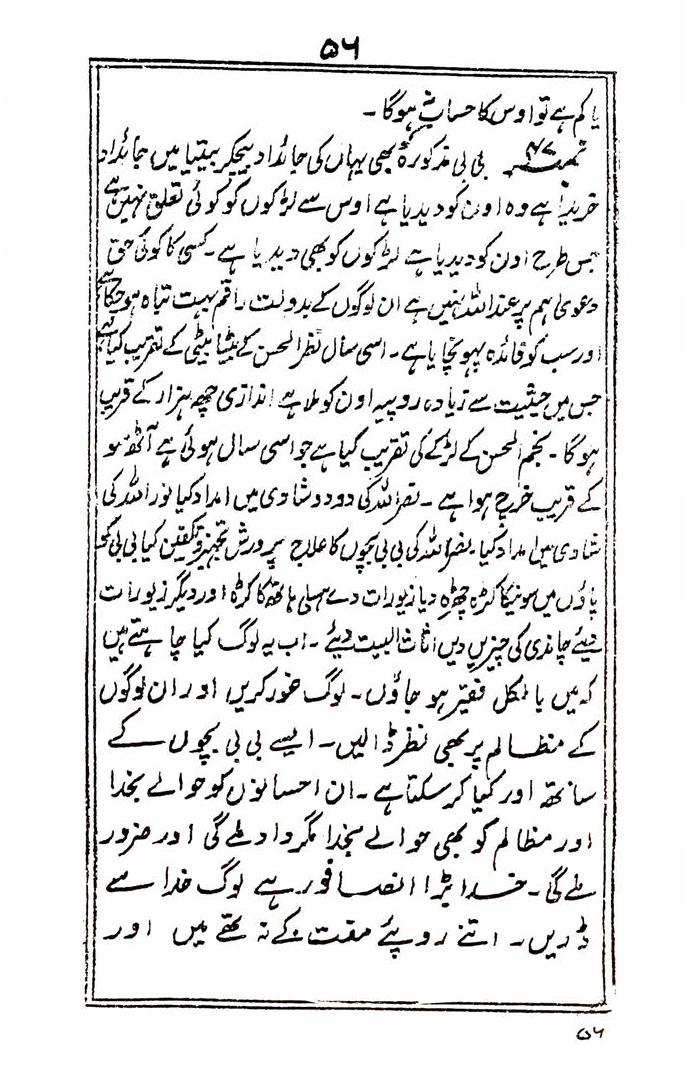 ۵۶
یا کم ہے تو اوس کا حساب ہوگا ۔
نمبر۴۷ بی بی مذکورہ بھی یہاں کی جائداد بیچکر بیتیا میں جائداد
خریدا ہے وہ اون کو دیدیا ہے اوس سے لڑکوں کو کوئی تعلق نہیں ہے
جس طرح اون کو دیدیا ہے لڑکوں کو بھی دیدیا ہے ۔ کسی کا کوئی حق
دعویٰ ہم پر عنداللہ نہیں ہے ان لوگوں کے بدولت راقم بہت تباہ ہو چکا ہے
اور سب کو فائدہ پہونچایا ہے ۔ اسی سال نظر الحسن کے بیٹا بیٹی کے تقریب کیا ہے
جس میں حیثیت سے زیادہ روپیہ اون کو ملا ہے اندازی چھ ہزار کے قریب
ہوگا ۔ نجم الحسن کے لڑکے کی تقریب کیا ہے جو اسی سال ہوئی ہے آٹھ سو
کے قریب خرچ ہوا ہے ۔ نصراللہ کی دو دو شادی میں امداد کیا نوراللہ کی
شادی میں امداد کیا ۔ نصراللہ کی بی بی بچوں کا علاج پرورش تجہیز و تکفین کیا بی بی کو
پاؤں میں سونیکا کڑہ چھڑہ دیا زیورات دے ہسلی ہاتھ کا کڑہ اور دیگر زیورات
دیئے چاندی کی چیزیں دیں اثاث البیت دیئے ۔ اب یہ لوگ کیا چاہتے ہیں
کہ میں بالکل فقیر ہو جاؤں ۔ لوگ غور کریں اور ان لوگوں
کے مظالم پر بھی نظر ڈالیں ۔ ایسے بی بی بچوں کے
ساتھ اور کیا کر سکتا ہے ۔ ان احسانوں کو حوالے بخدا
اور مظالم کو بھی حوالے بخدا مگر داد ملے گی اور ضرور
ملے گی ۔ خدا بڑا انصافور ہے لوگ خدا سے
ڈریں ۔ اتنے روپئے مفت کے نہ تھے ہیں اور
۵۶